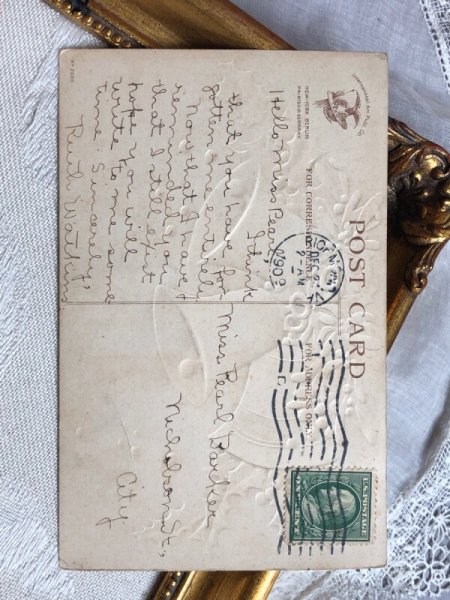 POST CARD
FOR CORRESPONDENCE
FOR ADDRESS ONLY
INTERNATIONAL ART PUBL. CO.
NEW-YORK BERLIN
PRINTED IN GERMANY
DEC
9-AM
1909
Hello Miss Pearl,
I think
that you have for-
gotten me entirely
Now that I have
reminded you
that I still exist
hope you will
write to me some
time. Sincerely,
Ruth Watkins
Miss Pearl
Nicholson St.,
City
U.S. POSTAGE
ONE CENT